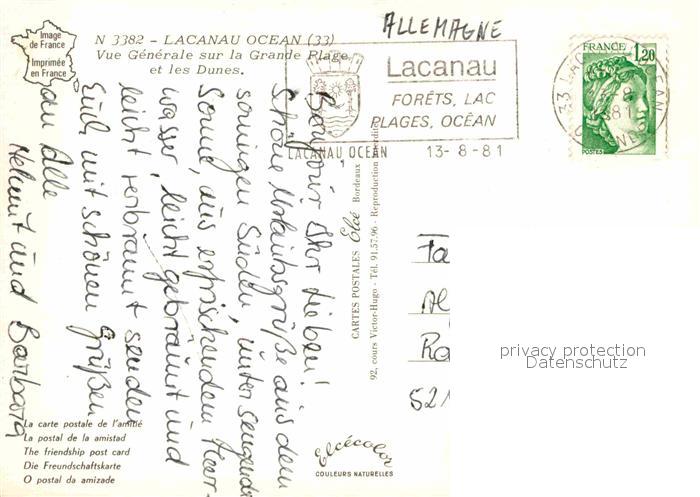 Image
de France
Imprimée
en France
N 3382 - LACANAU OCEAN (33)
Vue Générale sur la Grande Plage
et les Dunes.
ALLEMAGNE
Lacanau
FORÊTS, LAC
PLAGES, OCÉAN
LACANAU OCEAN 13-8-81
FRANCE
1,20
POSTES
Bonjour Ihr Lieben!
Schöne Urlaubsgrüße aus dem
sonnigen Süden, unter sengender
Sonne, aus erfrischendem Meer-
wasser, leicht gebräunt und
leicht verbrannt senden
Euch mit schönen Grüßen
an Alle
Helmut und Barbara
CARTES POSTALES Elcé Bordeaux
92, cours Victor-Hugo - Tél. 91.57.96 - Reproduction interdite
Fa
Al
Ra
521
privacy protection
Datenschutz
La carte postale de l'amitié
La postal de la amistad
The friendship post card
Die Freundschaftskarte
O postal da amizade
Elcécolor
COULEURS NATURELLES